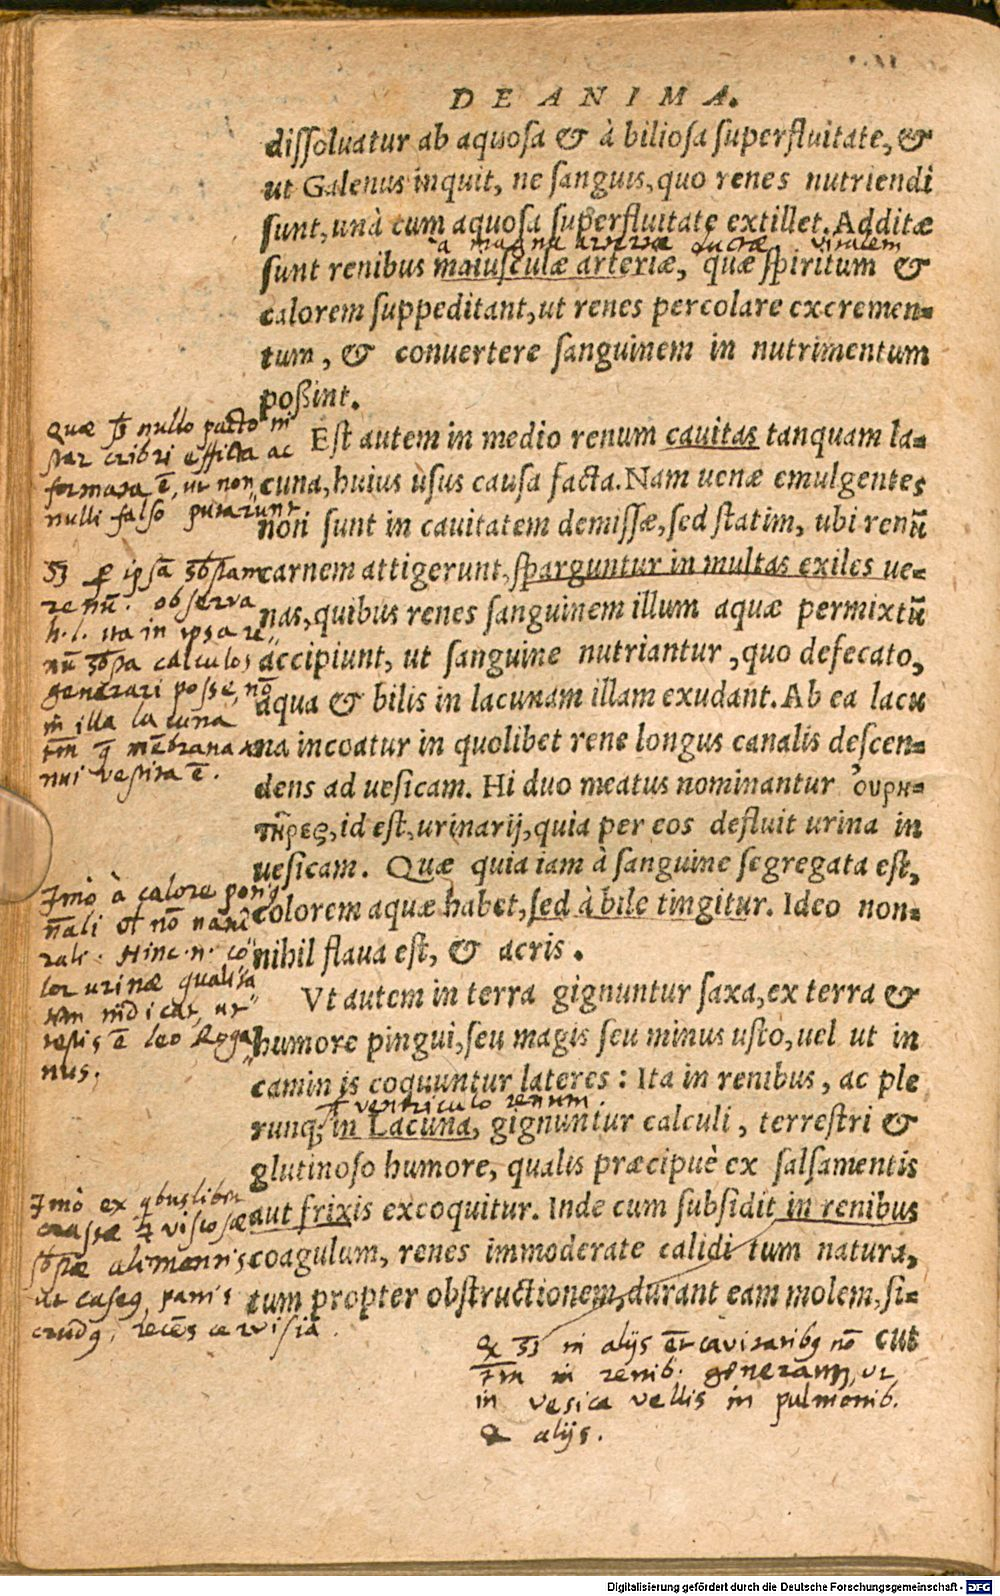 DE ANIMA.
dissoluatur ab aquosa & à biliosa superfluitate, &
ut Galenus inquit, ne sanguis, quo renes nutriendi
sunt, unà cum aquosa superfluitate extillet. Additæ
à magna arteria ductæ. vitalem
sunt renibus maiusculæ arteriæ, quæ spiritum &
calorem suppeditant, ut renes percolare excremen=
tum, & convertere sanguinem in nutrimentum
poßint.
Est autem in medio renum cauitas tanquam la=
cuna, huius usus causa facta. Nam uenæ emulgentes
non sunt in cauitatem demissæ, sed statim, ubi renū
carnem attigerunt, sparguntur in multas exiles ue=
nas, quibus renes sanguinem illum aquæ permixtū
accipiunt, ut sanguine nutriantur, quo defecato,
aqua & bilis in lacunam illam exudant. Ab ea lacu
na incoatur in quolibet rene longus canalis descen=
dens ad uesicam. Hi duo meatus nominantur οὐρη=
τῆρες, id est, urinarij, quia per eos defluit urina in
uesicam. Quæ quia iam à sanguine segregata est,
colorem aquæ habet, sed à bile tingitur. Ideo non=
nihil flaua est, & acris.
Vt autem in terra gignuntur saxa, ex terra &
humore pingui, seu magis seu minus usto, uel ut in
caminis coquuntur lateres: Ita in renibus, ac ple
ventriculo renum.
runq; in Lacuna, gignuntur calculi, terrestri &
glutinoso humore, qualis præcipuè ex salsamentis
aut frixis excoquitur. Inde cum subsidit in renibus
coagulum, renes immoderate calidi tum natura,
tum propter obstructionem, durant eam molem, si=
cut
Quæ nullo pacto in
star cribri efficta ac
formata ē, ut non
nulli falso putarunt
ꝑ ipsā
renū. observa
h. l. ita in ipsa re=
nū calculos
generari posse, nō
in illa lacuna
tm̄ q̄ mēbrana te
nui vestita ē.
Imò à calore
nō natu
rali. Hinc .n. co=
lor urinæ qualita
tem indicat, ut
testis ē Leo Roga=
nus.
Imò ex qbuslibet
crassæ viscosæ
alimentis
ut caseo, panis
crudo, recēs cervisia.
in alijs cavitatibꝰ nō
tm̄ in renib. generantur, ut
in vesica vellis in pulmonib.
& alijs.
Digitalisierung gefördert durch die Deutsche Forschungsgemeinschaft - DFG